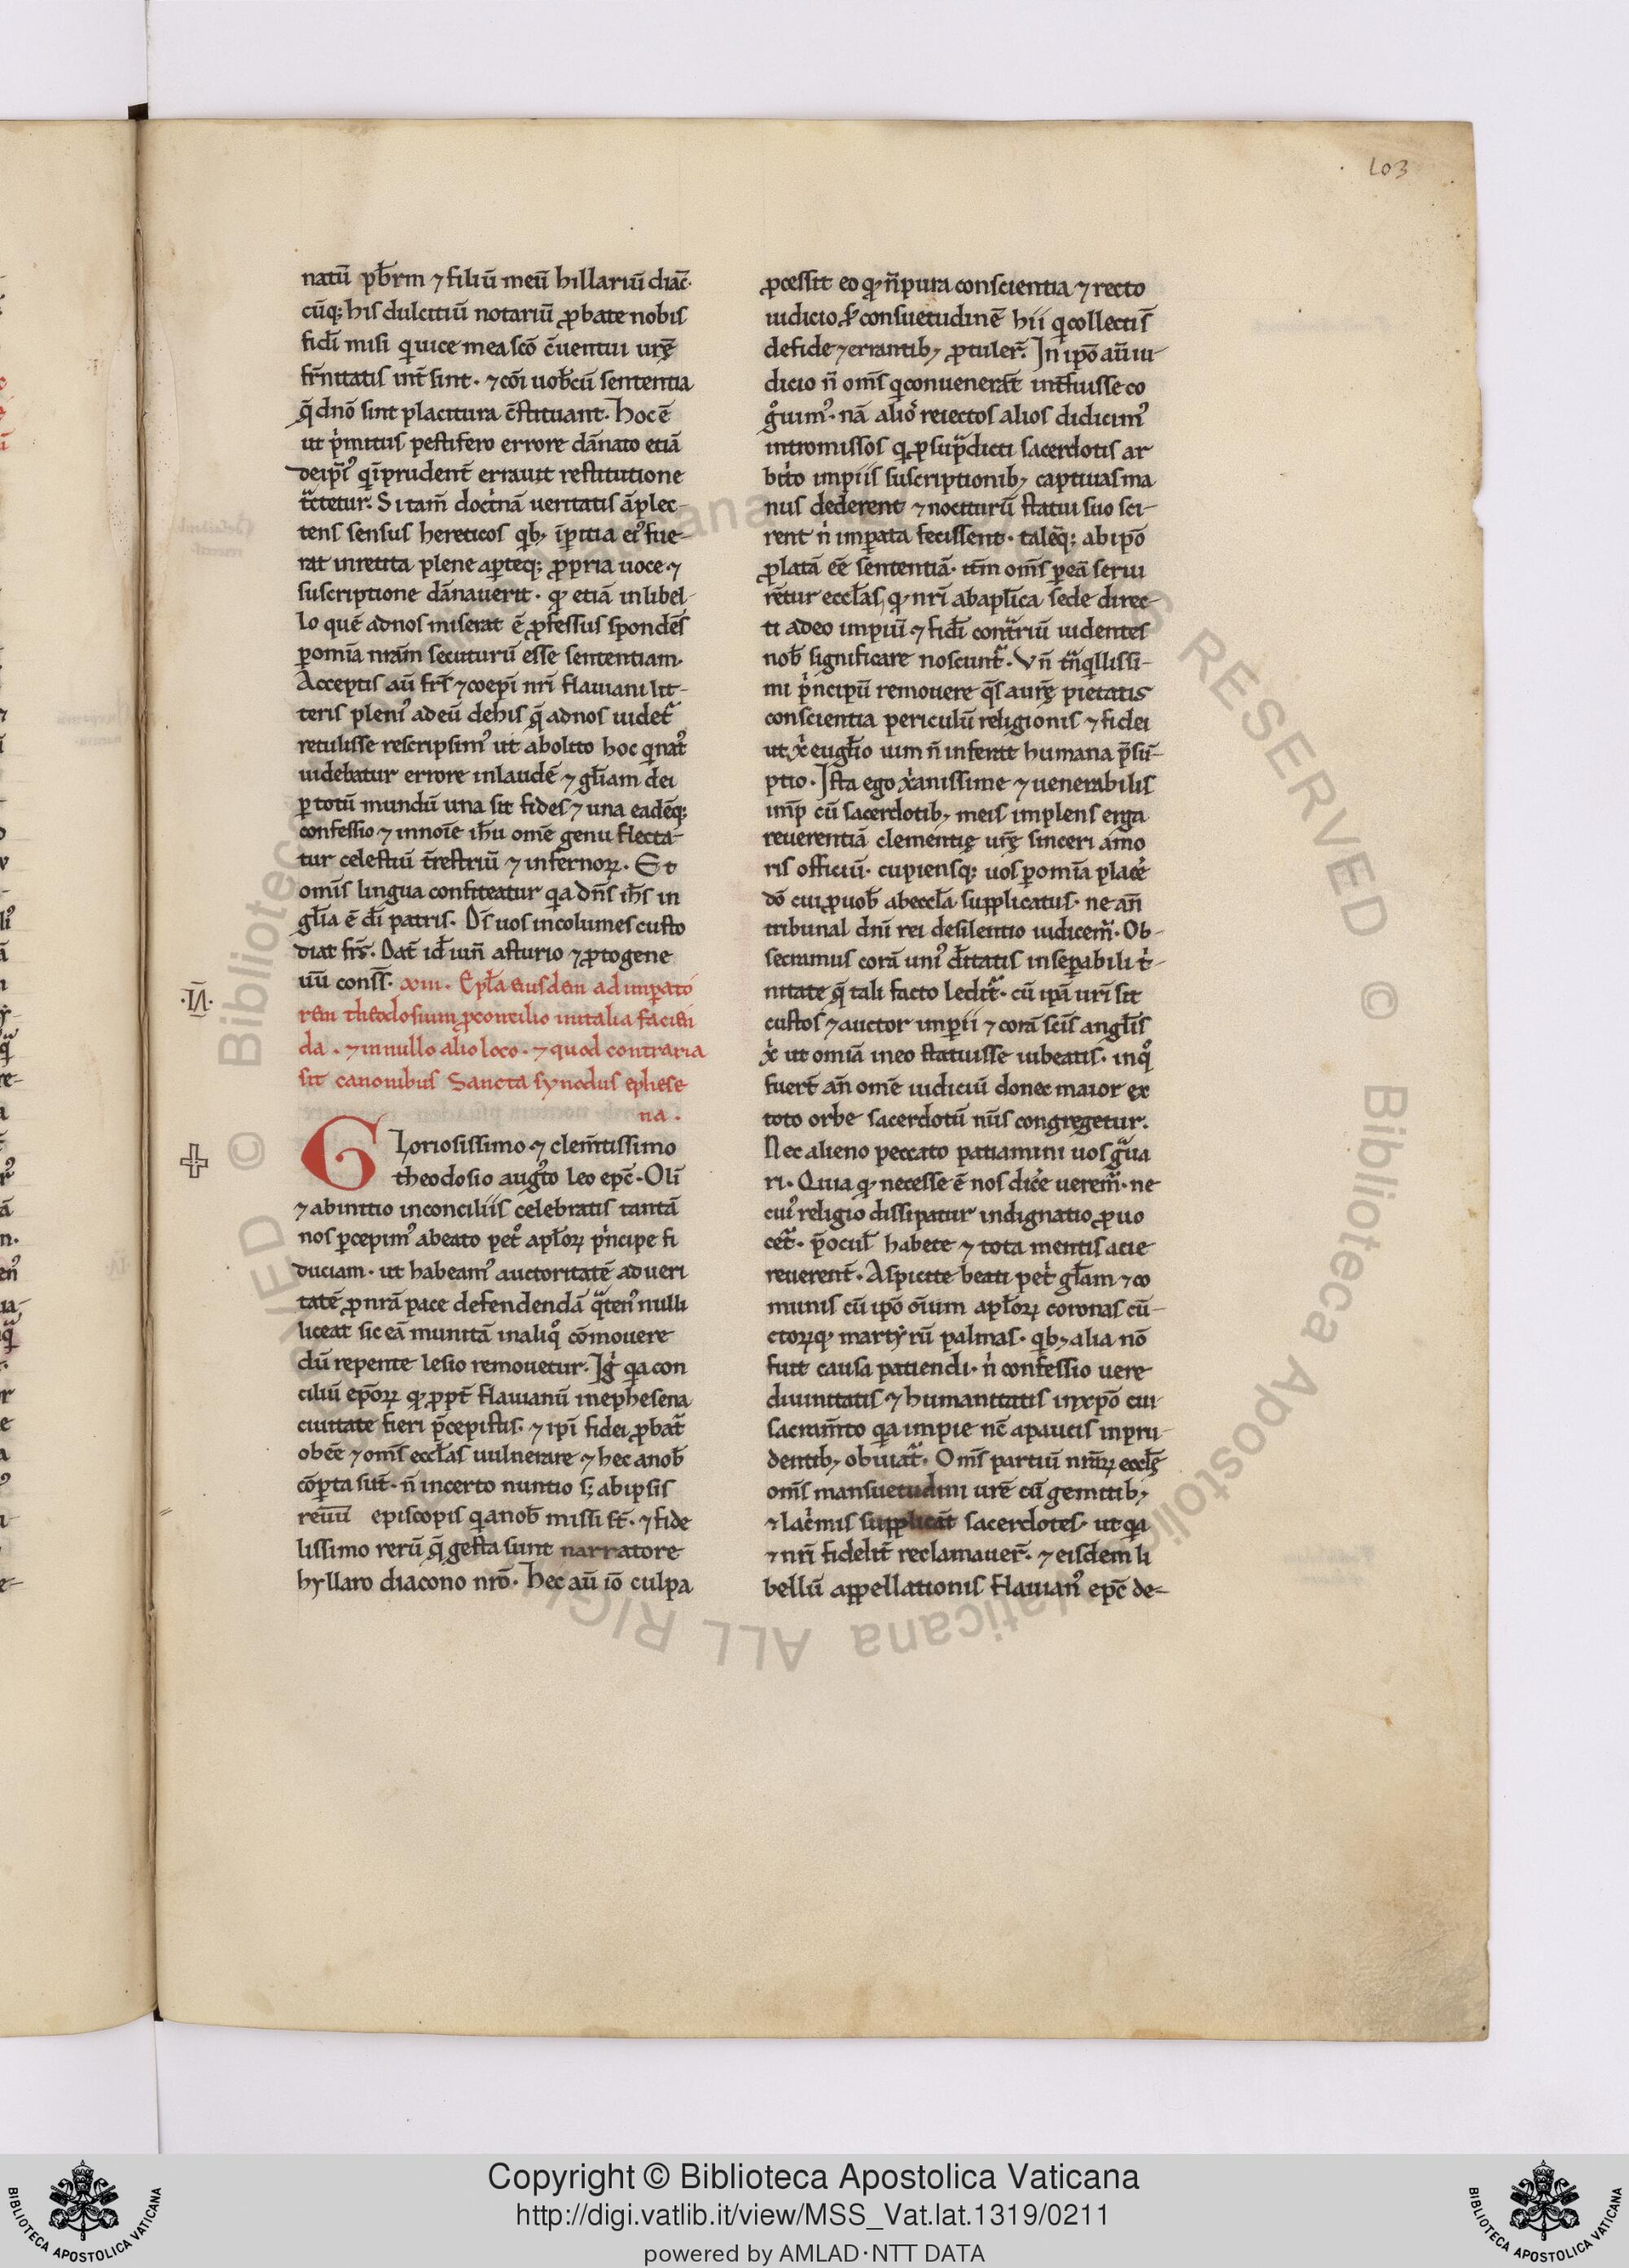 103
natū pb̄rm ⁊ filiū meū hillariū diac̄.
cūq; his dulcitiū notariū ꝓbate nobis
fidi misi qui uice mea sc̄o c̄uentui ur̄ę
fr̄nitatis int̄ sint. ⁊ cōi uob̄cū sententia
q̄ dn̄o sint placitura c̄stituant. Hoc ē
ut p̍mitus pestifero errore dānato etiā
de ip̄i᾽ qi īprudent̄ errauit restitutione
t̄ctetur. Si tam̄ doct̍nā ueritatis āplec-
tens sensus hereticos qb, īp̱itia ei᾽ fue-
rat inretita plene aꝑteq; ꝓpria uoce ⁊
suscriptione dānauerit. qđ etiā in libel-
lo quē ad nos miserat ē ꝓfessus spondēs
ꝑ om̄ia nr̄am secuturū esse sententiam.
Acceptis aū fr̄is ⁊ coep̄i nr̄i flauiani lit-
teris pleni᾽ ad eū de his q̄ ad nos uidet᷑
retulisse rescripsim᾽ ut abolito hoc q nat᾽
uidebatur errore in laudē ⁊ gl̄iam dei
ꝑ totū mundū una sit fides ⁊ una eadēq;
confessio ⁊ in noīe ih̄u omē genu flecta-
tur celestiū t̄restriū ⁊ infernoꝝ. Et
omīs lingua confiteatur qa dn̄s ih̄s in
gl̄ia ē dī patris. D̄s uos incolumes custo
diat fr̄s. Dat̄ id̄ iun̄ asturio ⁊ ꝓtogene
uū conss̄. xiii. Epl̄a eiusdem ad imꝑato
rem theodosium ꝓ concilio in italia facien
da. ⁊ in nullo alio loco. ⁊ quod contraria
sit canonibus Sancta synodus ephese
na.
·IN̄·
Gloriosissimo ⁊ clem̄tissimo
theodosio augto leo ep̄c. Olī
⁊ ab initio in conciliis celebratis tantā
nos ꝑcepim᾽ a beato pet᾽ apl̄oꝝ p̍ncipe fi
duciam. ut habeam᾽ auctoritatē ad ueri
tatē ꝓ nr̄a pace defendendā q̄ten᾽ nulli
liceat sic eā munitā in aliq᾽ cōmouere
dū repente lesio remouetur. Ig̍ qa con
ciliū ep̄oꝝ qđ ꝓpt̄ flauianū in ephesena
ciuitate fieri p̄cepistis. ⁊ ip̄i fidei ꝓbat᷑
obeē ⁊ om̄s eccl̄as uulnerare ⁊ hec a nob̄
cōꝑta sūt. n̄ incerto nuntio s; ab ipsis
reuū episcopis qi a nob̄ missi st̄. ⁊ fide
lissimo rerū q̄ gesta sunt narratore
hyllaro diacono nr̄o. Hec aū iō culpa
ꝓcessit eo qđ n̄ pura conscientia ⁊ recto
iudicio scđ consuetudinē hii qi collectis
de fide ⁊ errantib, ꝓtuler̄. In ip̄o aū iu-
dicio n̄ om̄s qi conuenerāt int̄fuisse co
g᾽uim᾽. nā alios reiectos alios didicim᾽
intromissos qi ꝓ sup̄dicti sacerdotis ar
bit̍o impiis suscriptionib, captiuas ma
nus dederent ⁊ nociturū statui suo sci-
rent n̍ imꝑata fecissent. talēq; ab ip̄o
ꝓlatā eē sententiā. ut dum om̄s ꝑ eā seriu
rētur eccl̄as, qđ nr̄i ab apl̄ica sede direc-
ti adeo impiū ⁊ fidī cont̄riū uidentes
nob̄ significare noscunt᷑. Vn̄ tn̄qllissi-
mi p̍ncipū remouere qs aur̄ę pietatis
conscientia periculū religionis ⁊ fidei
ut x̍ eugl̄io uim n̄ inferat humana p̄sū-
ptio. Ista ego x̍anissime ⁊ uenerabilis
imp̄ cū sacerdotib, meis implens erga
reuerentiā clementię ur̄ę sinceri amo
ris officiū. cupiensq; uos ꝑ om̄ia place̍
dō cui ꝓ uob̄ ab eccl̄a supplicatus. ne an̄
tribunal dn̄i rei de silentio iudicem᷑. Ob-
secramus corā uni᾽ d̄itatis inseꝑabili t̍-
nitate q̄ tali facto ledit᷑. cū ip̄a ur̄i sit
custos ⁊ auctor imꝑii ⁊ corā sc̄is angl̄is
x̍ ut om̄ia in eo statuisse iubeatis. in q᾽
fuer̄t an̄ omē iudiciū donec maior ex
toto orbe sacerdotū nūs congregetur.
Nec alieno peccato patiamini uos g̍ua
ri. Quia qđ necesse ē nos dice̍ uerem᷑. ne
cui᾽ religio dissipatur indignatio ꝓuo
cet᷑. p̄ ocul᾽ habete ⁊ tota mentis acie
reuerent̄. Aspicite beati pet̍ gl̄am ⁊ co
munis cū ip̄o oīum apl̄oꝝ coronas cū-
ctoꝝq, martyrū palmas. qb, alia nō
fuit causa patiendi. n̍ confessio uere
diuinitatis ⁊ humanitatis in xp̄o cui
sacram̄to qa impie nc̄ a paucis inpru-
dentib, obuiat᷑. Om̄s partiū nr̄aꝝ eccl̄ę
om̄s mansuetudini ur̄e cū gemitib,
⁊ lac̍mis supplicāt sacerdotes. ut qa
⁊ nr̄i fidelit̄ reclamauer̄. ⁊ eisdem li
bellū appellationis flauian᾽ ep̄c de-
Copyright © Biblioteca Apostolica Vaticana
http://digi.vatlib.it/view/MSS_Vat.lat.1319/0211
powered by AMLAD·NTT DATA
BIBLIOTECA APOSTOLICA VATICANA
BIBLIOTECA APOSTOLICA VATICANA